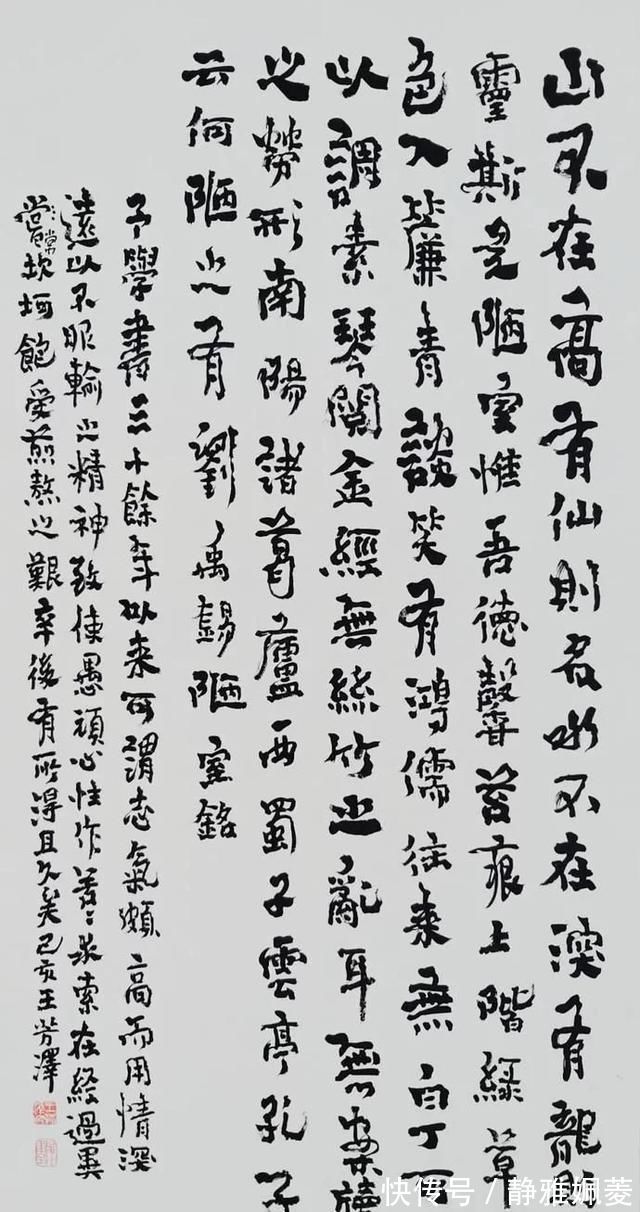 山不在高有仙則名水不在深有龍則
靈斯是陋室惟吾德馨苔痕上階綠草
色入簾青談笑有鴻儒往來無白丁可
以調素琴閱金經無絲竹之亂耳無案牘
之勞形南陽諸葛廬西蜀子雲亭孔子
云何陋之有劉禹錫陋室銘
予學書三十餘年以来可謂志氣頗高而用情深
遠以不服輸之精神致使愚頑心性作苦苦求索在經過異
嘗常坎坷飽受煎熬之艱辛後有所得且久矣己亥王芳澤
快传号／静雅姵菱